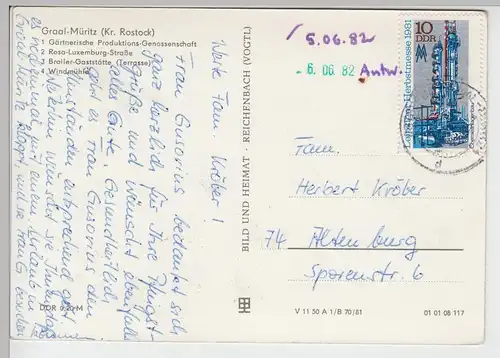 Graal-Müritz (Kr. Rostock)
1 Gärtnerische Produktions-Genossenschaft
2 Rosa-Luxemburg-Straße
3 Broiler-Gaststätte (Terrasse)
4 Windmühle
Werte Fam. Kröber!
Frau Gusovius bedankt sich
ganz herzlich für Ihre Pfingst-
grüße und wünscht ebenfalls
alles Gute. Gesundheitlich
geht es Frau Gusovius den
Umständen entsprechend gut.
DDR 0,20 M
BILD UND HEIMAT · REICHENBACH (VOGTL)
V 11 50 A 1/B 70/81
01 01 08 117
5.06.82
6. 06. 82 Antw.
10
DDR
Leipziger Herbstmesse 1981
Fam.
Herbert Kröber
74 Altenburg
Sporenstr. 6